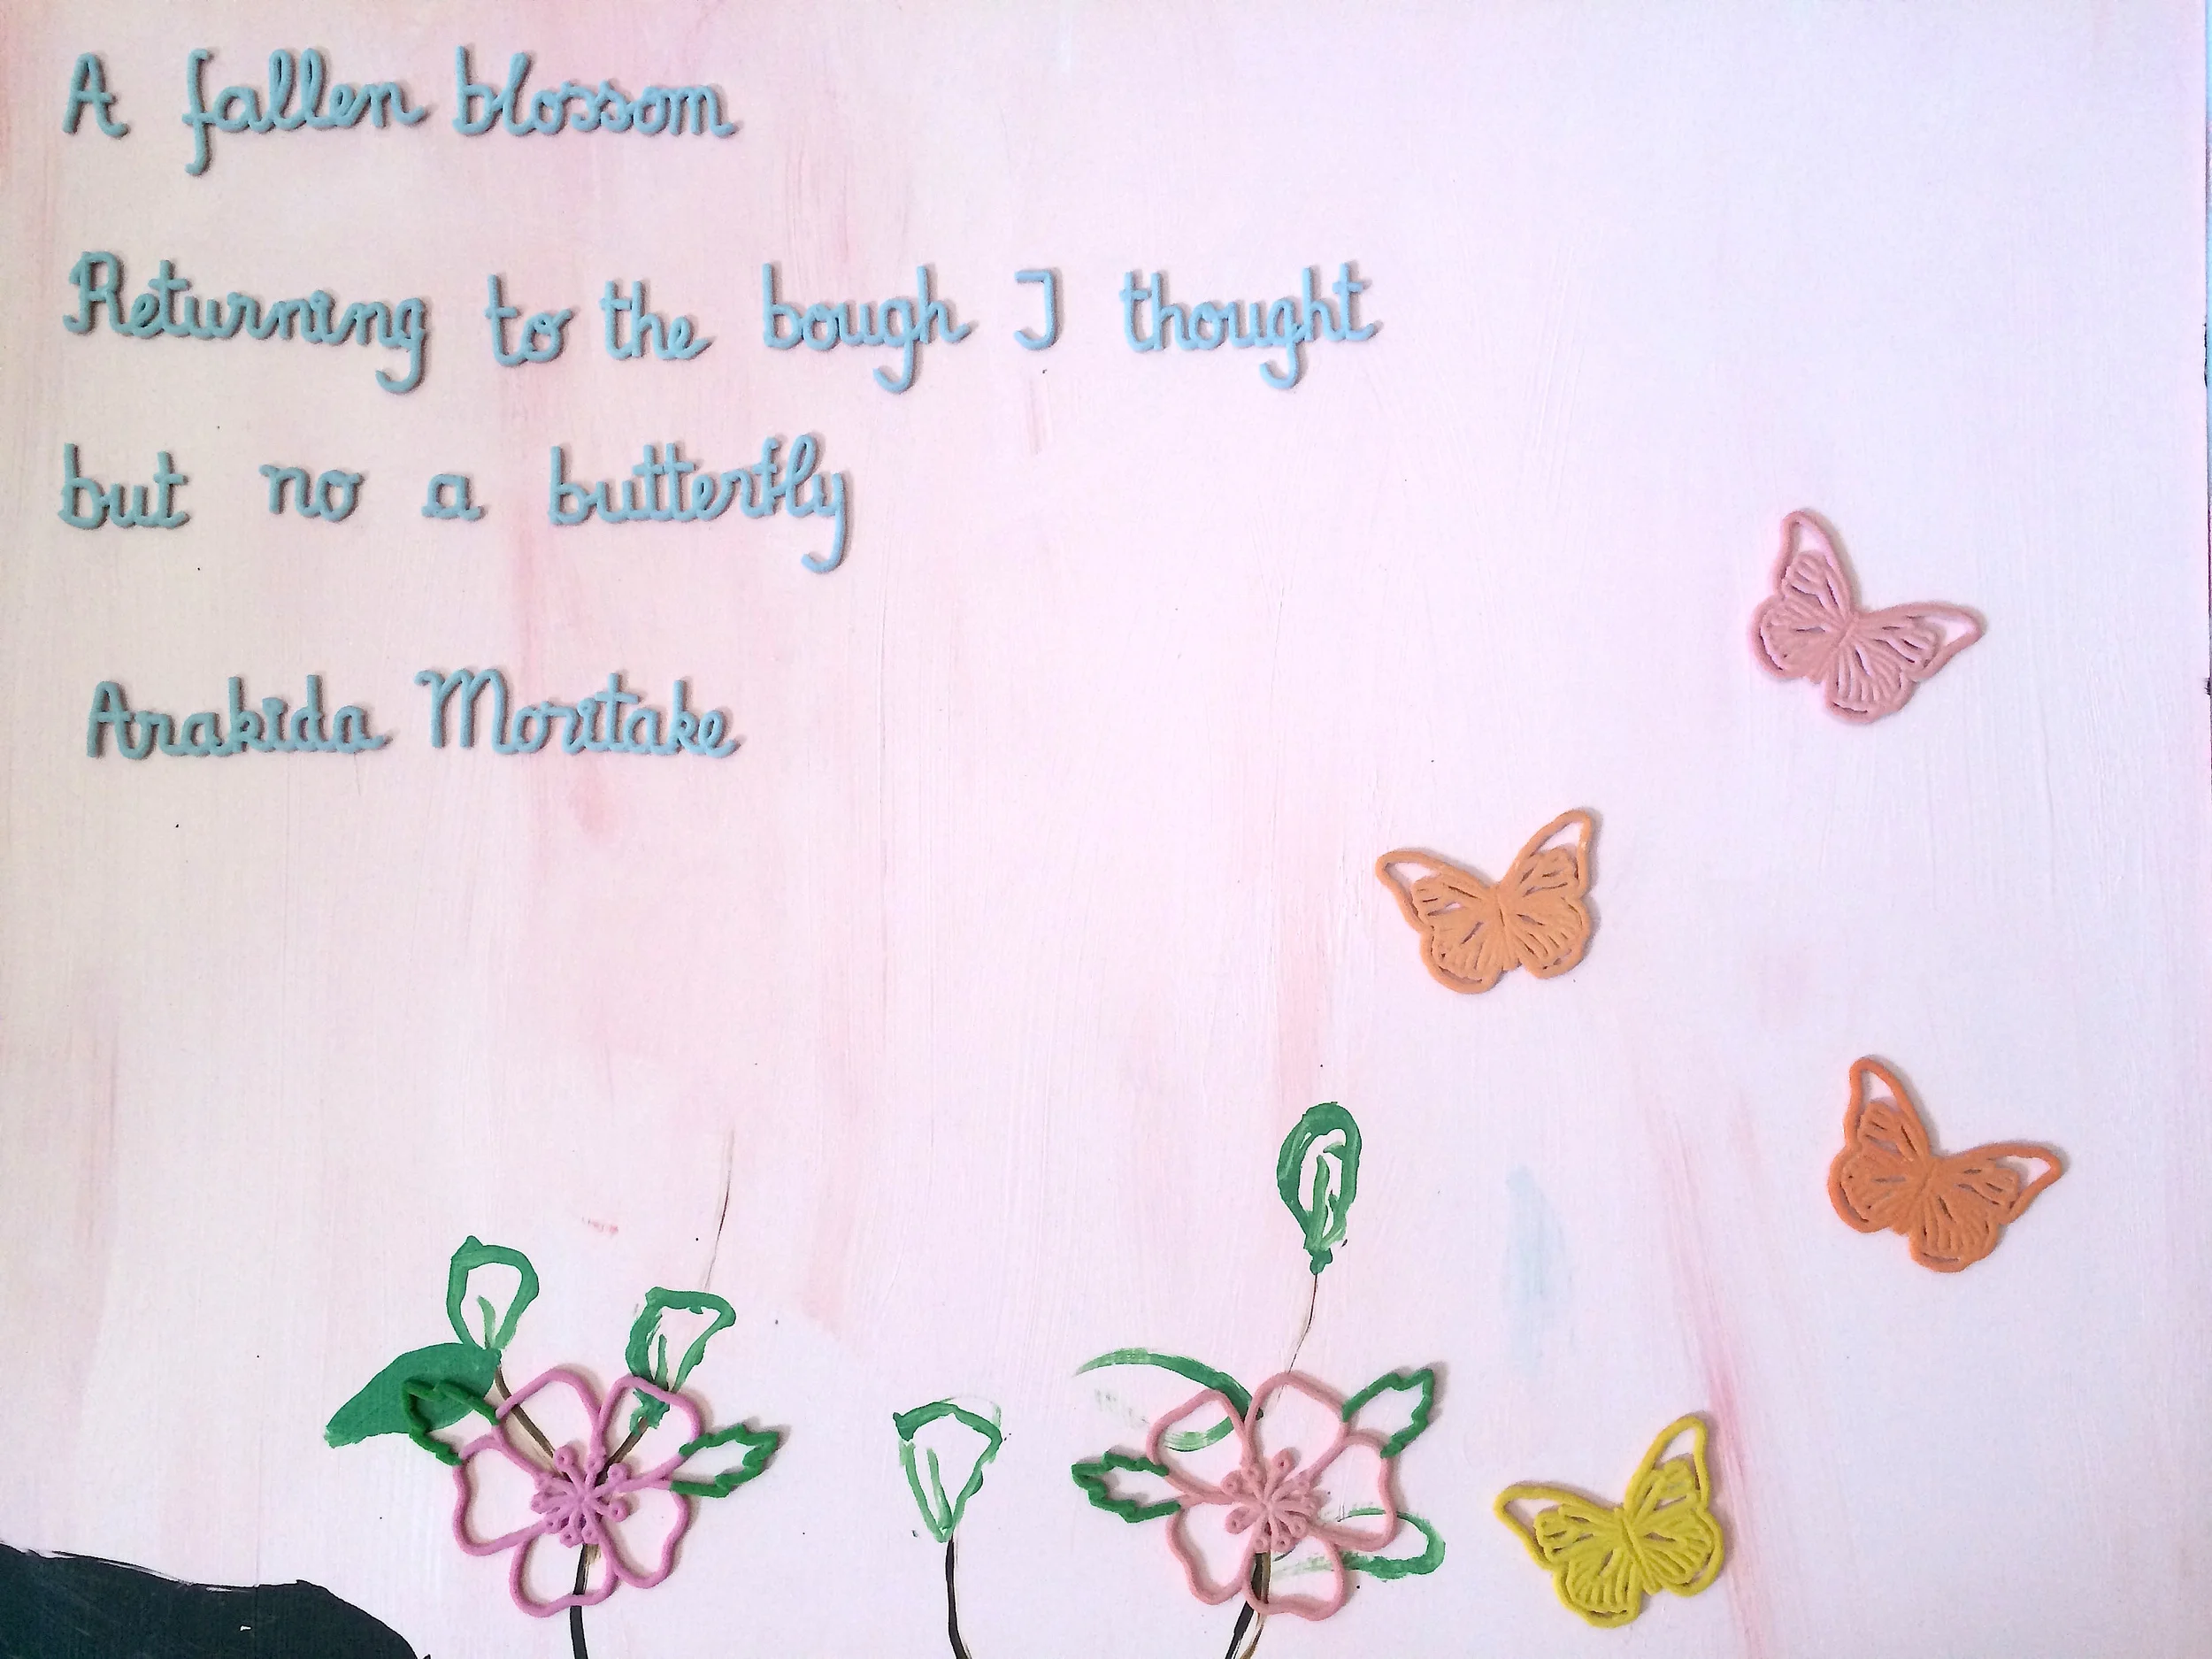 A fallen blossom
Returning to the bough I thought
but no a butterfly
Arakida Moritake